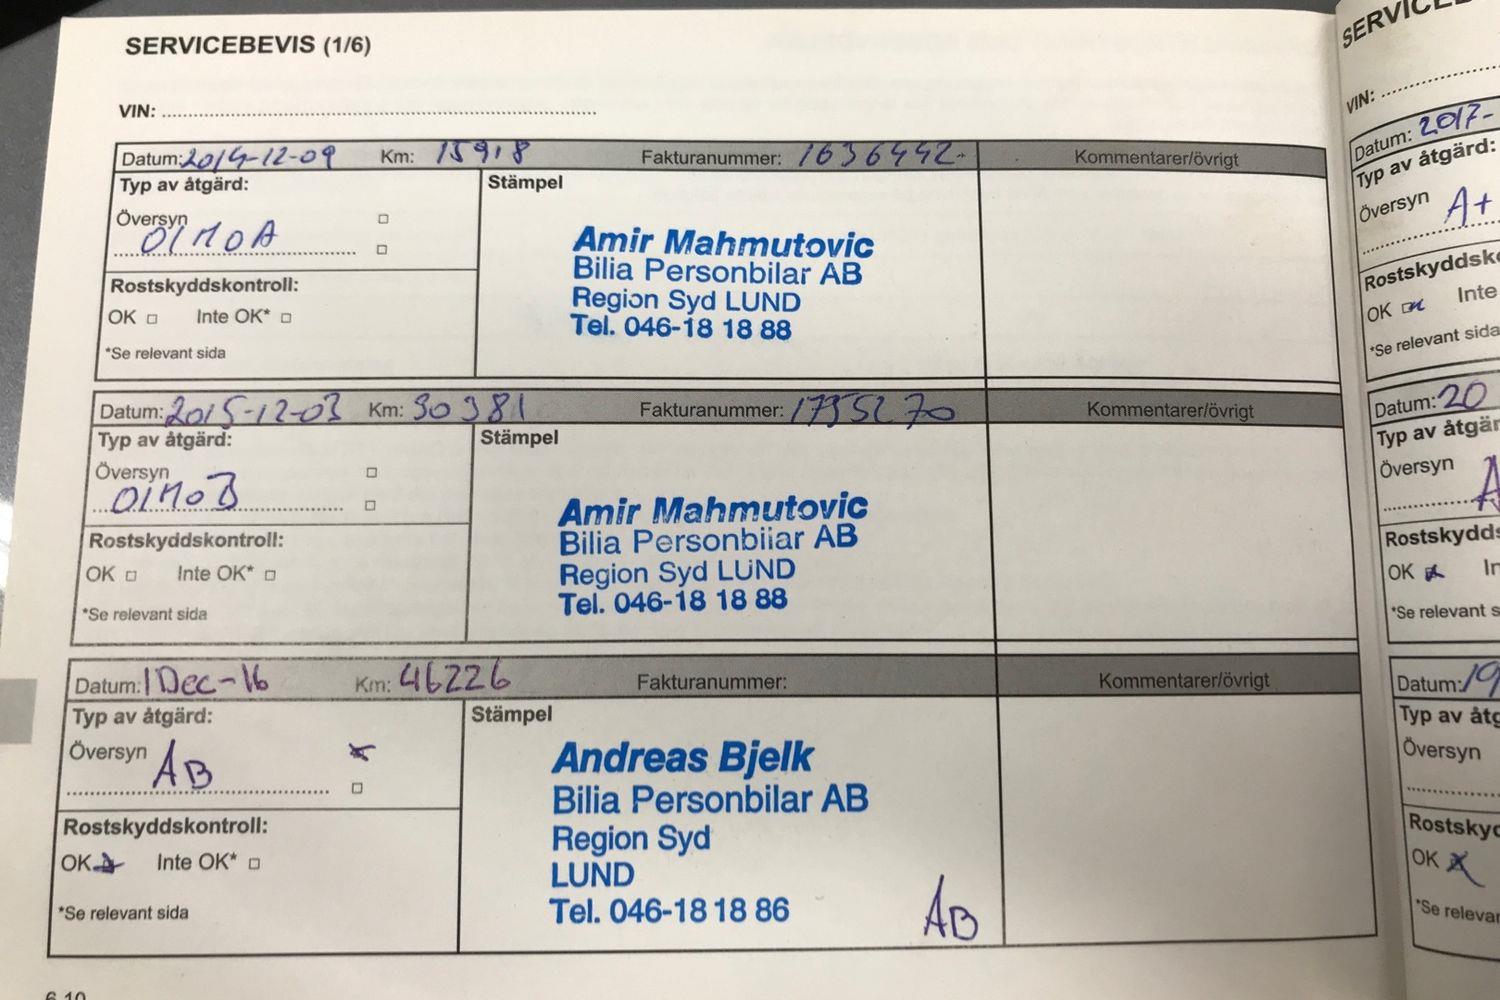 SERVICEBEVIS (1/6)
VIN:
Datum: 2014-12-09 Km: 15918 Fakturanummer: 1636442- Kommentarer/övrigt
Typ av åtgärd: Stämpel
Översyn
01M0A
Rostskyddskontroll:
OK Inte OK*
*Se relevant sida
Amir Mahmutovic
Bilia Personbilar AB
Region Syd LUND
Tel. 046-18 18 88
Datum: 2015-12-03 Km: 30381 Fakturanummer: 1795270 Kommentarer/övrigt
Typ av åtgärd: Stämpel
Översyn
01M0B
Rostskyddskontroll:
OK Inte OK*
*Se relevant sida
Amir Mahmutovic
Bilia Personbilar AB
Region Syd LUND
Tel. 046-18 18 88
Datum: 1 Dec-16 Km: 46226 Fakturanummer: Kommentarer/övrigt
Typ av åtgärd: Stämpel
Översyn
AB
Rostskyddskontroll:
OK Inte OK*
*Se relevant sida
Andreas Bjelk
Bilia Personbilar AB
Region Syd
LUND
Tel. 046-18 18 86
AB
VIN:
Datum: 2017-
Typ av åtgärd:
Översyn A+
OK Inte
*Se relevant sida
Datum: 20
Typ av
Översyn A
OK
*Se relevant
Datum: 19
Typ av
Översyn
OK
*Se